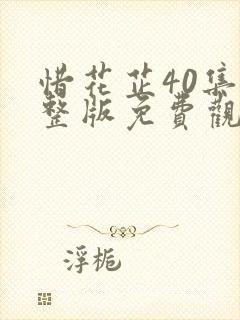 惜花芷40集
整版免費觀
浮梔